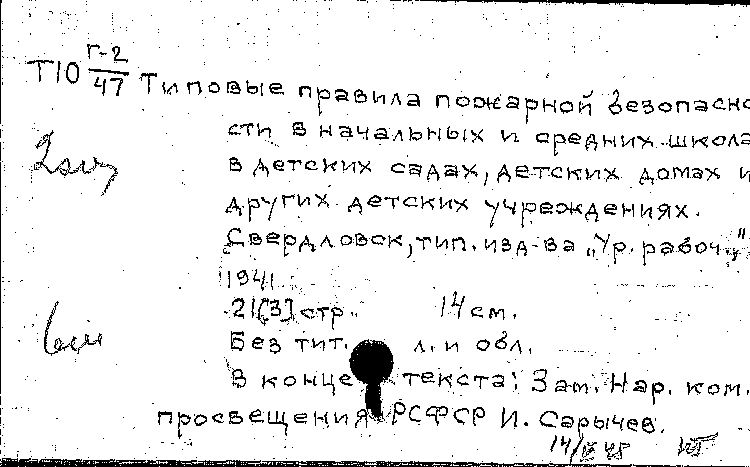 Т10 Г-2/47 Типовые правила пожарной безопасно
сти в начальных и средних школа
в детских садах, детских домах и
других детских учреждениях.
Свердловск, тип. изд-ва „Ур. рабоч."
1941.
21[3] стр. 14 см.
Без тит. л. и обл.
В конце текста: Зам. Нар. ком.
просвещения РСФСР И. Сарычев.